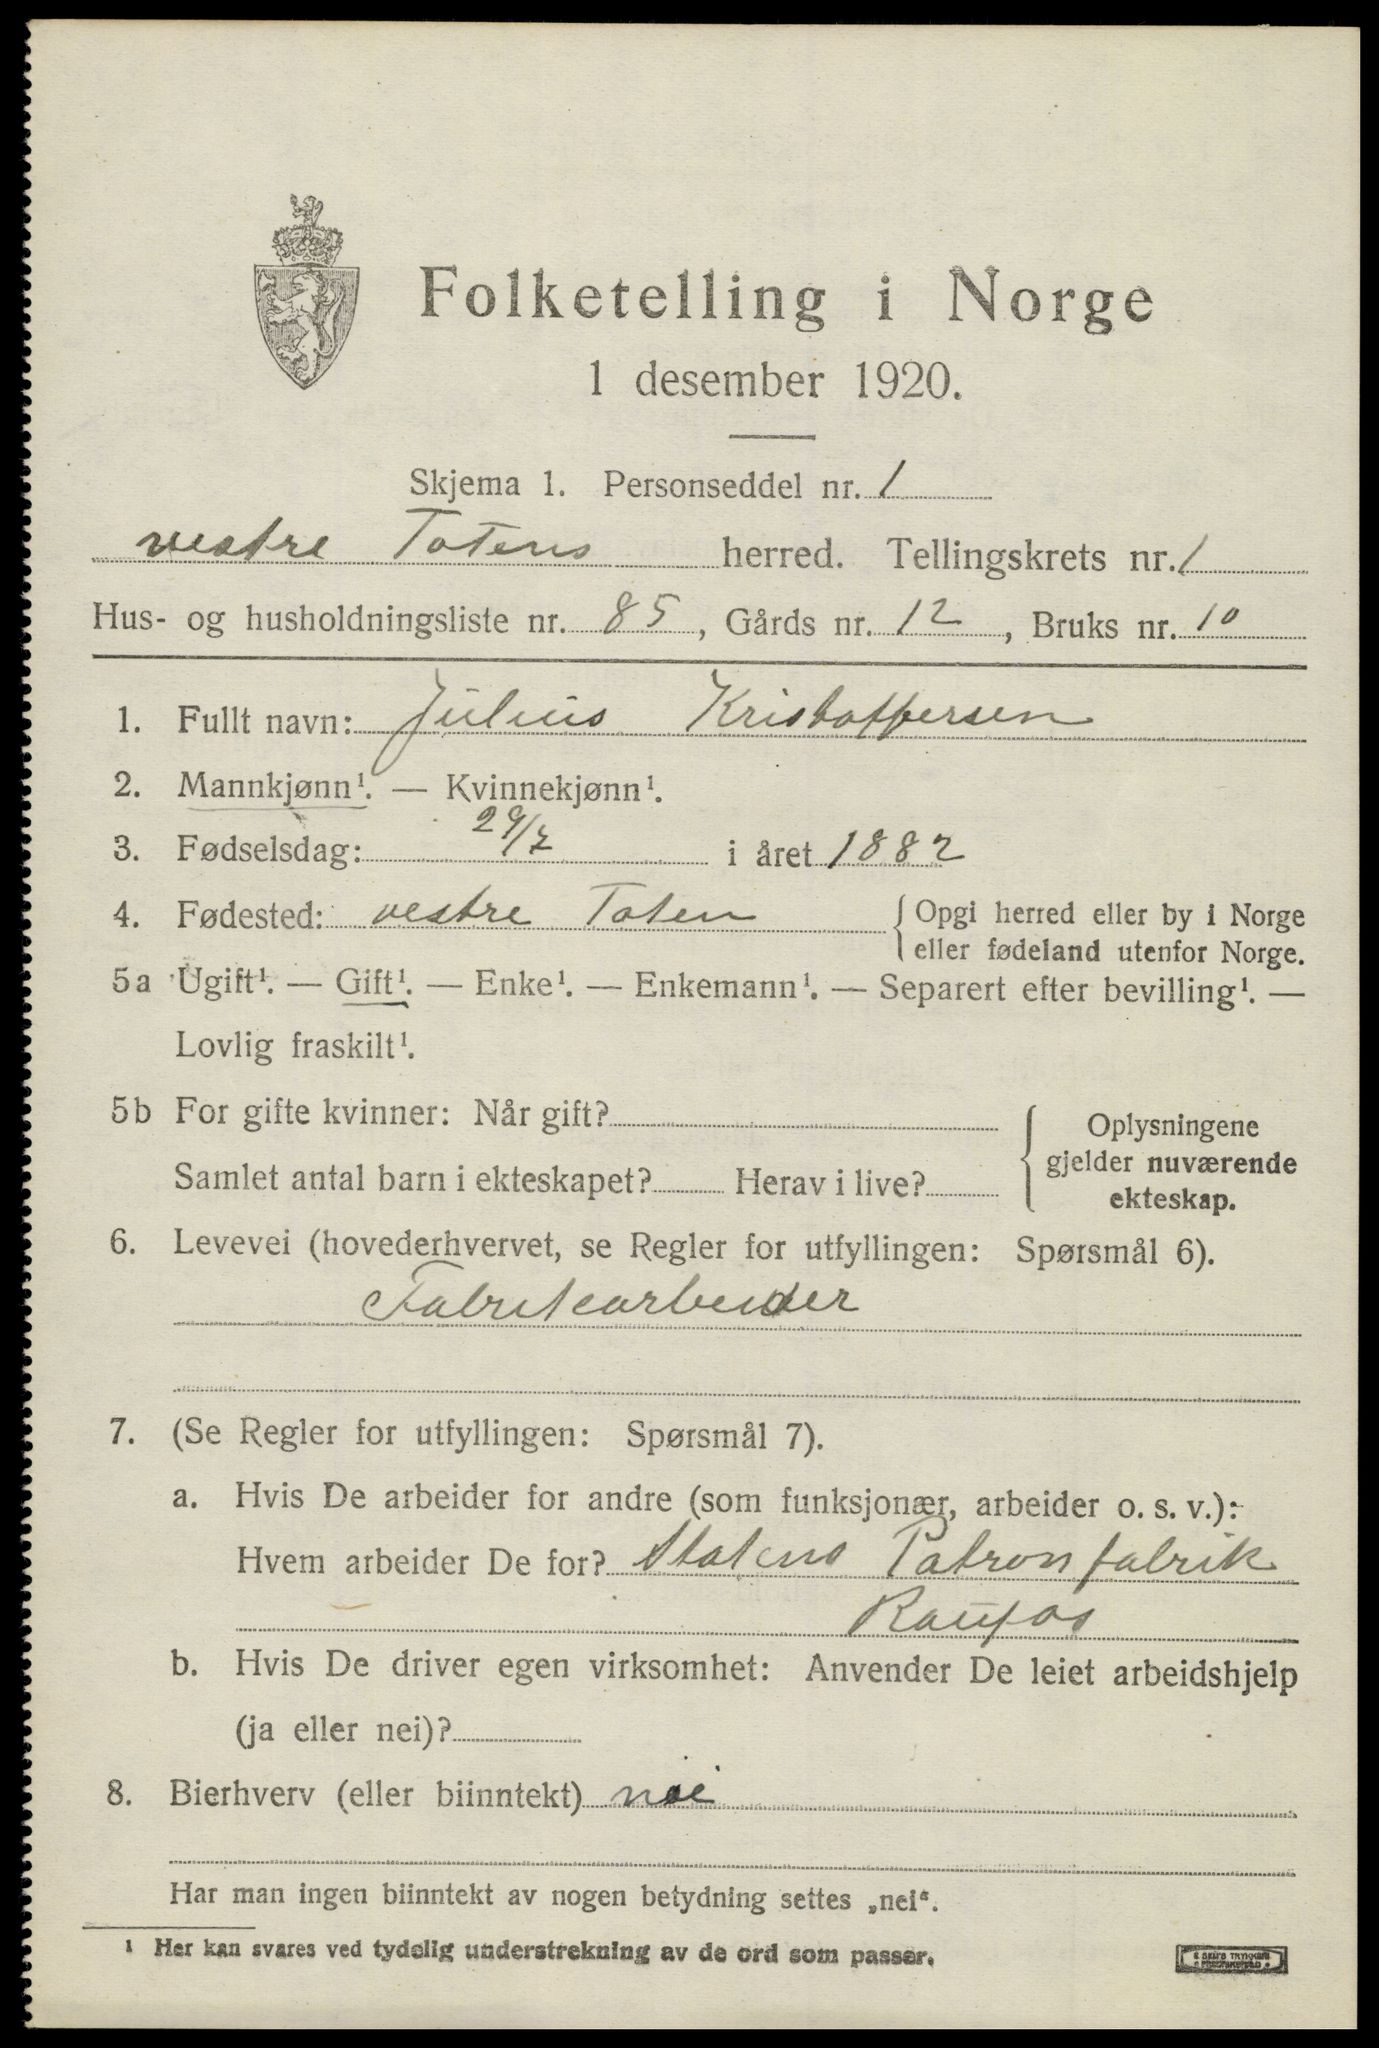 Folketelling i Norge
1 desember 1920.
Skjema 1. Personseddel nr. 1
vestre Totens herred. Tellingskrets nr. 1
Hus- og husholdningsliste nr. 85, Gårds nr. 12, Bruks nr. 10
1. Fullt navn: Julius Kristoffersen
2. Mannkjønn¹. — Kvinnekjønn¹.
3. Fødselsdag: 29/7 i året 1882
4. Fødested: vestre Toten { Opgi herred eller by i Norge
eller fødeland utenfor Norge.
5a Ugift¹. — Gift¹. — Enke¹. — Enkemann¹. — Separert efter bevilling¹. —
Lovlig fraskilt¹.
5b For gifte kvinner: Når gift? { Oplysningene
gjelder nuværende
Samlet antal barn i ekteskapet? Herav i live? ekteskap.
6. Levevei (hovederhvervet, se Regler for utfyllingen: Spørsmål 6).
Fabrikarbeider
7. (Se Regler for utfyllingen: Spørsmål 7).
a. Hvis De arbeider for andre (som funksjonær, arbeider o. s. v.):
Hvem arbeider De for? Statens Patronfabrik
Raufos
b. Hvis De driver egen virksomhet: Anvender De leiet arbeidshjelp
(ja eller nei)?
8. Bierhverv (eller biinntekt) nei
Har man ingen biinntekt av nogen betydning settes „nei“.
¹ Her kan svares ved tydelig understrekning av de ord som passer.